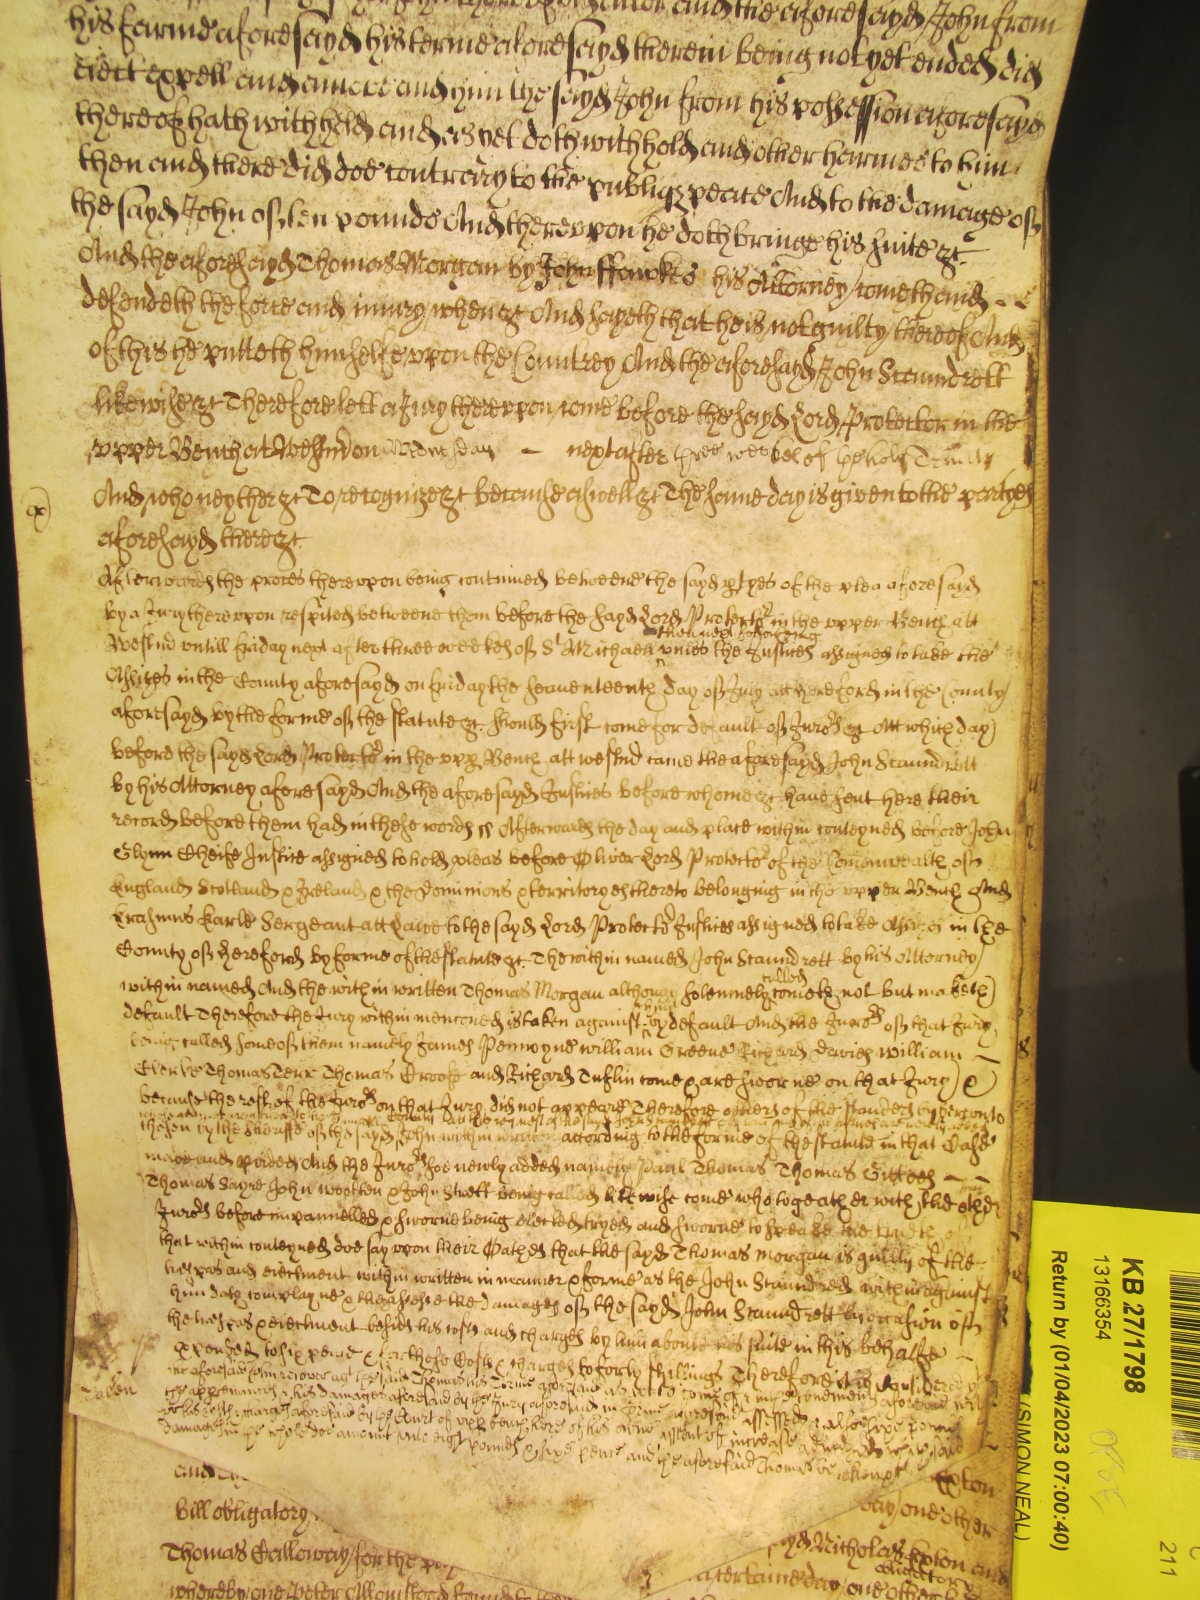 and the aforesayd John from
his farme aforesayd his terme aforesayd therein being not yet ended did
eiect expell and amove and him the sayd John from his possession aforesayd
thereof hath withheld and as yet doth withhold and other harmes to him
then and there did doe contrary to the publiq peace And to the damage of
the sayd John of ten pounds And thereupon he doth bringe his suite &c
And the aforesayd Thomas Morgan by John ffowkes his Attorney cometh and
defendeth the force and iniury when &c And sayeth that he is not guilty thereof And
of this he putteth himselfe upon the Countrey And the aforesayd John Scaundrett
likewise &c Therefore lett a Jury thereupon come before the sayd Lord Protector in the
upper Bench at Westmr on Wednesday next after three weekes of the holy Trinity
And who neyther &c To recognize &c because aswell &c The same day is given to the partyes
aforesayd there &c
Afterwards the proces thereupon being continued betweene the sayd ptyes of the plea aforesayd
by a Jury thereupon respited betweene them before the sayd Lord Protector in the upper Bench att
then next following
Westmr untill friday next after three weekes of St Michaell unles the Justices assigned to take the
Assizes in the County aforesayd on friday the seaventeenth day of July att Hereford in the County
aforesayd by the forme of the statute &c should first come for default of Jurors &c Att which day
before the sayd Lord Protector in the upp Bench att westmr came the aforesayd John Scaundrett
by his Attorney aforesayd And the aforesayd Justices before whome &c have sent here their
record before them had in these words ss Afterwards the day and place within conteyned before John
Glynn Cheife Justice assigned to hold pleas before Oliver Lord Protector of the Comonwealth of
England Scotland & Ireland & the Dominions & territoryes thereto belonging in the upper Bench And
Erasmus Earle Sergeant att Lawe to the sayd Lord Protector Justices assigned to take Assizes in the
County of Hereford by forme of the statute &c The within named John Scaundrett by his Attorney
called
within named And the within written Thomas Morgan although solemnely cometh not but maketh
default Therefore the Jury within menconed is taken against him by default And the Jurors of that Jury
being called some of them namely James Pennoyne William Greene Richard Davies William
Clerke Thomas Terr Thomas Crooke and Richard Tuflin come & are sworne on that Jury &
because the rest of the Jurors on that Jury did not appeare Therefore others of the standers by
chosen by the Sheriffe of the sayd according to the forme of the statute in that Case
made and provided And the Jurors soe newly added namely Paul Thomas Thomas Gittoes
Thomas Sayre John Wootten & John Strett being called likewise come who togeather with the other
Jurors before impannelled & sworne being elected tryed and sworne to speake the truth of
that within conteyned doe say upon their Oathes that the sayd Thomas Morgan is guilty of the
trespas and eiectment within written in manner & forme as the John Scaundred within against
him hath complayned & they assesse the damages of the sayd John Scaundrett by occasion of
the trespas & eiectment besides his costs and charges by him about his suite in this behalfe
expended to six pence & for those Costs & charges to forty shillings Therefore it is Considered
the aforesaid John recover agt the said Thomas his Terme aforesaid
the appurtenances & his damages aforesaid by the Jury aforesaid in forme aforesaid assessed
for his costs & charges aforesaid by the Court of upp bench here of his owne assent of increase adiudged
damages in the whole doe amount unto eight pounds & six pence and the aforesaid Thomas be
Exton
Bill obligatory
day one other
Thomas Calloway for the
sayd Nicholas Exton and
obligatory
whereby one Peter
a certaine day one other
KB 27/1798
13166354
Return by (01/04/2023 07:00:40)
(SIMON NEAL)
211